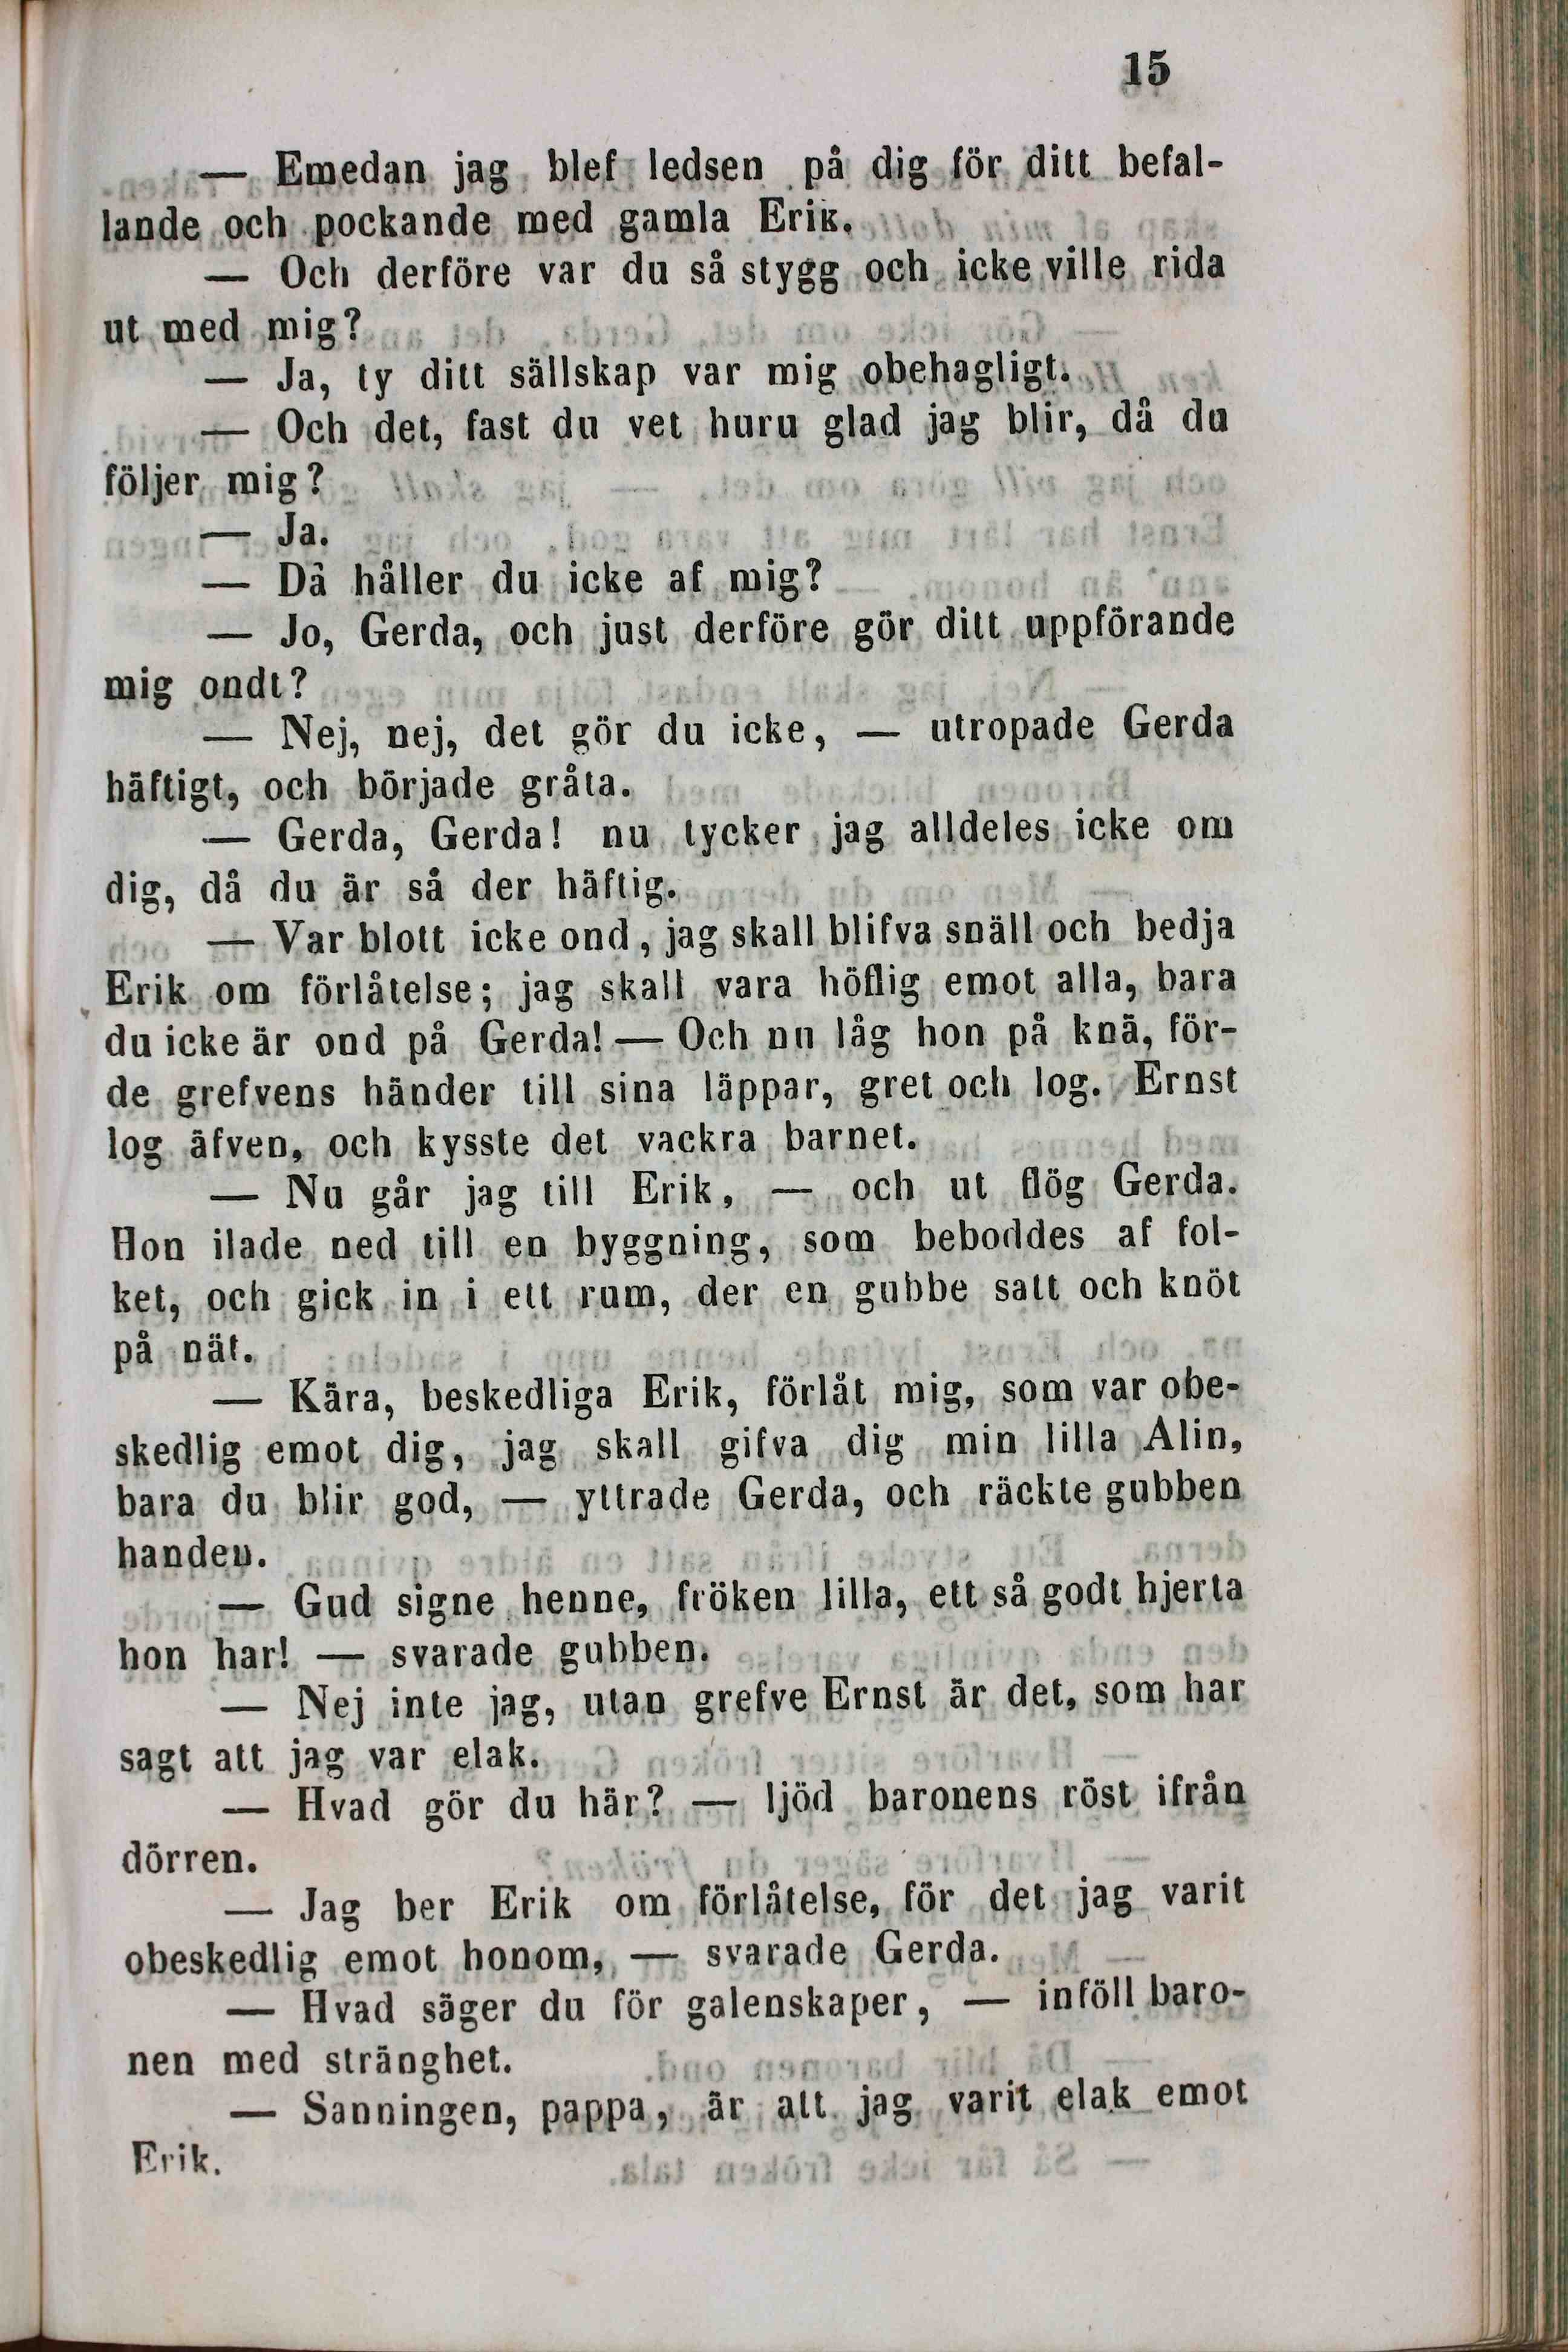 15
— Emedan jag blef ledsen på dig för ditt befal-
lande och pockande med gamla Erik.
— Och derföre var du så stygg och icke ville rida
ut med mig?
— Ja, ty ditt sällskap var mig obehagligt.
— Och det, fast du vet huru glad jag blir, då du
följer mig?
— Ja.
— Då håller du icke af mig?
— Jo, Gerda, och just derföre gör ditt uppförande
mig ondt?
— Nej, nej, det gör du icke, — utropade Gerda
häftigt, och började gråta.
— Gerda, Gerda! nu tycker jag alldeles icke om
dig, då du är så der häftig.
— Var blott icke ond, jag skall blifva snäll och bedja
Erik om förlåtelse; jag skall vara höflig emot alla, bara
du icke är ond på Gerda! — Och nu låg hon på knä, för-
de grefvens händer till sina läppar, gret och log. Ernst
log äfven, och kysste det vackra barnet.
— Nu går jag till Erik, — och ut flög Gerda.
Hon ilade ned till en byggning, som beboddes af fol-
ket, och gick in i ett rum, der en gubbe satt och knöt
på nät.
— Kära, beskedliga Erik, förlåt mig, som var obe-
skedlig emot dig, jag skall gifva dig min lilla Alin,
bara du blir god, — yttrade Gerda, och räckte gubben
handen.
— Gud signe henne, fröken lilla, ett så godt hjerta
hon har! — svarade gubben.
— Nej inte jag, utan grefve Ernst är det, som har
sagt att jag var elak.
— Hvad gör du här? — ljöd baronens röst ifrån
dörren.
— Jag ber Erik om förlåtelse, för det jag varit
obeskedlig emot honom, — svarade Gerda.
— Hvad säger du för galenskaper, — inföll baro-
nen med stränghet.
— Sanningen, pappa, är att jag varit elak emot
Erik.